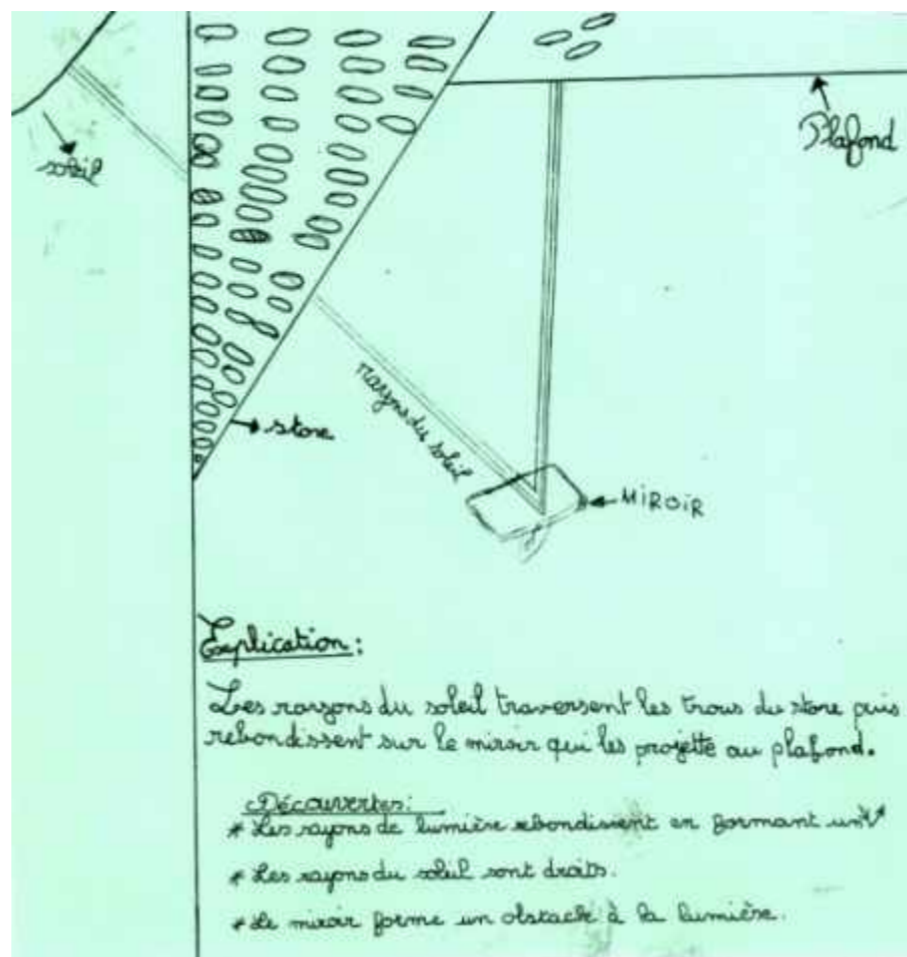 soleil
Plafond
rayons du soleil
store
MIROIR
Explication :
Les rayons du soleil traversent les trous du store puis
rebondissent sur le miroir qui les projette au plafond.
Découvertes :
* Les rayons de lumière rebondissent en formant un V
* Les rayons du soleil sont droits.
* Le miroir forme un obstacle à la lumière.